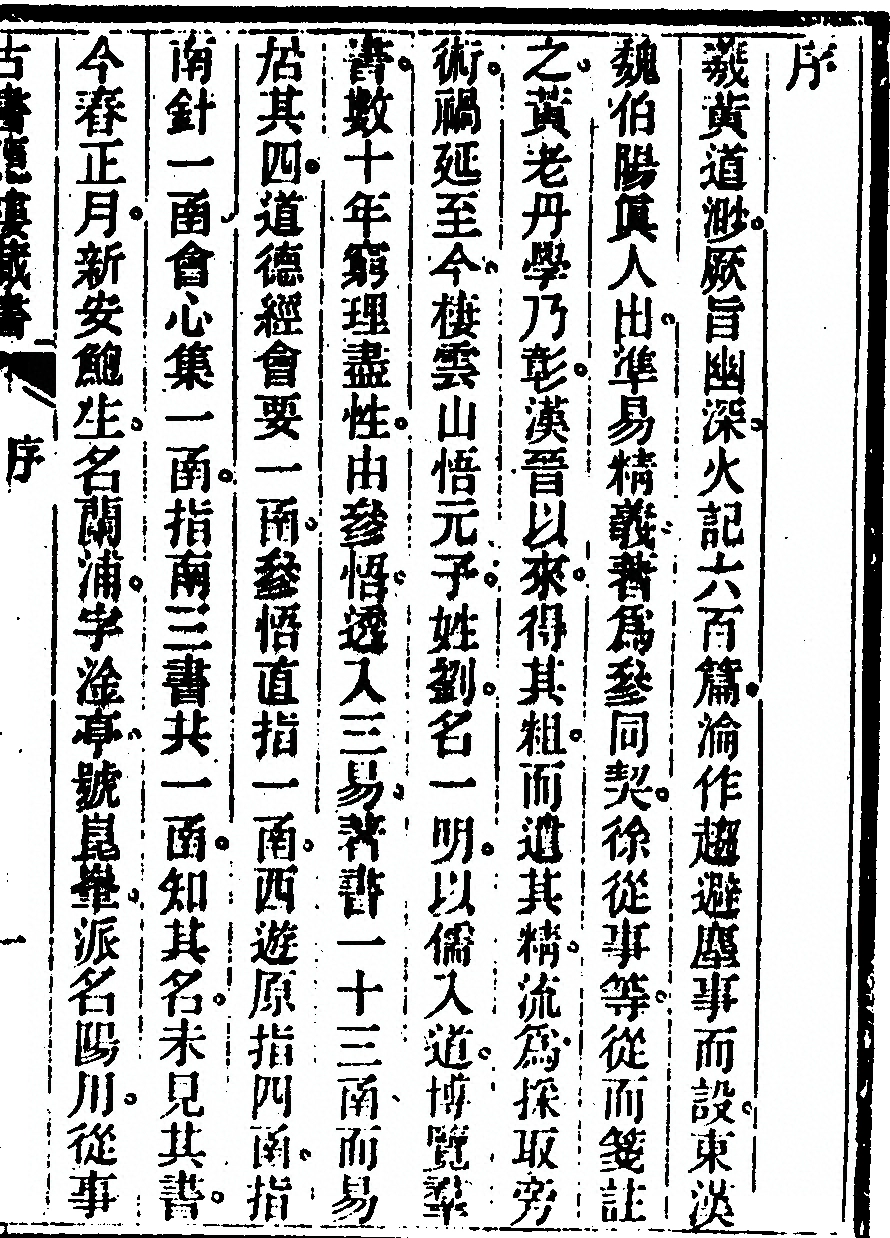 序
羲黃道渺。厥旨幽深。火記六百篇。淪作趨避塵事而設。東漢
魏伯陽眞人出。準易精義。著爲參同契。徐從事等。從而箋註
之。黃老丹學乃彰。漢晉以來。得其粗。而遺其精。流爲採取旁
術。禍延至今。棲雲山悟元子。姓劉。名一明。以儒入道。博覽羣
書。數十年窮理盡性。由參悟。透入三易。著書一十三函、而易
居其四。道德經會要一函。參悟直指一函。西遊原指四函。指
南針一函、會心集一函。指南三書共一函。知其名。未見其書。
今春正月。新安鮑生。名蘭浦。字淦亭。號崑。派名陽川。從事
古書隱樓藏書
序
一